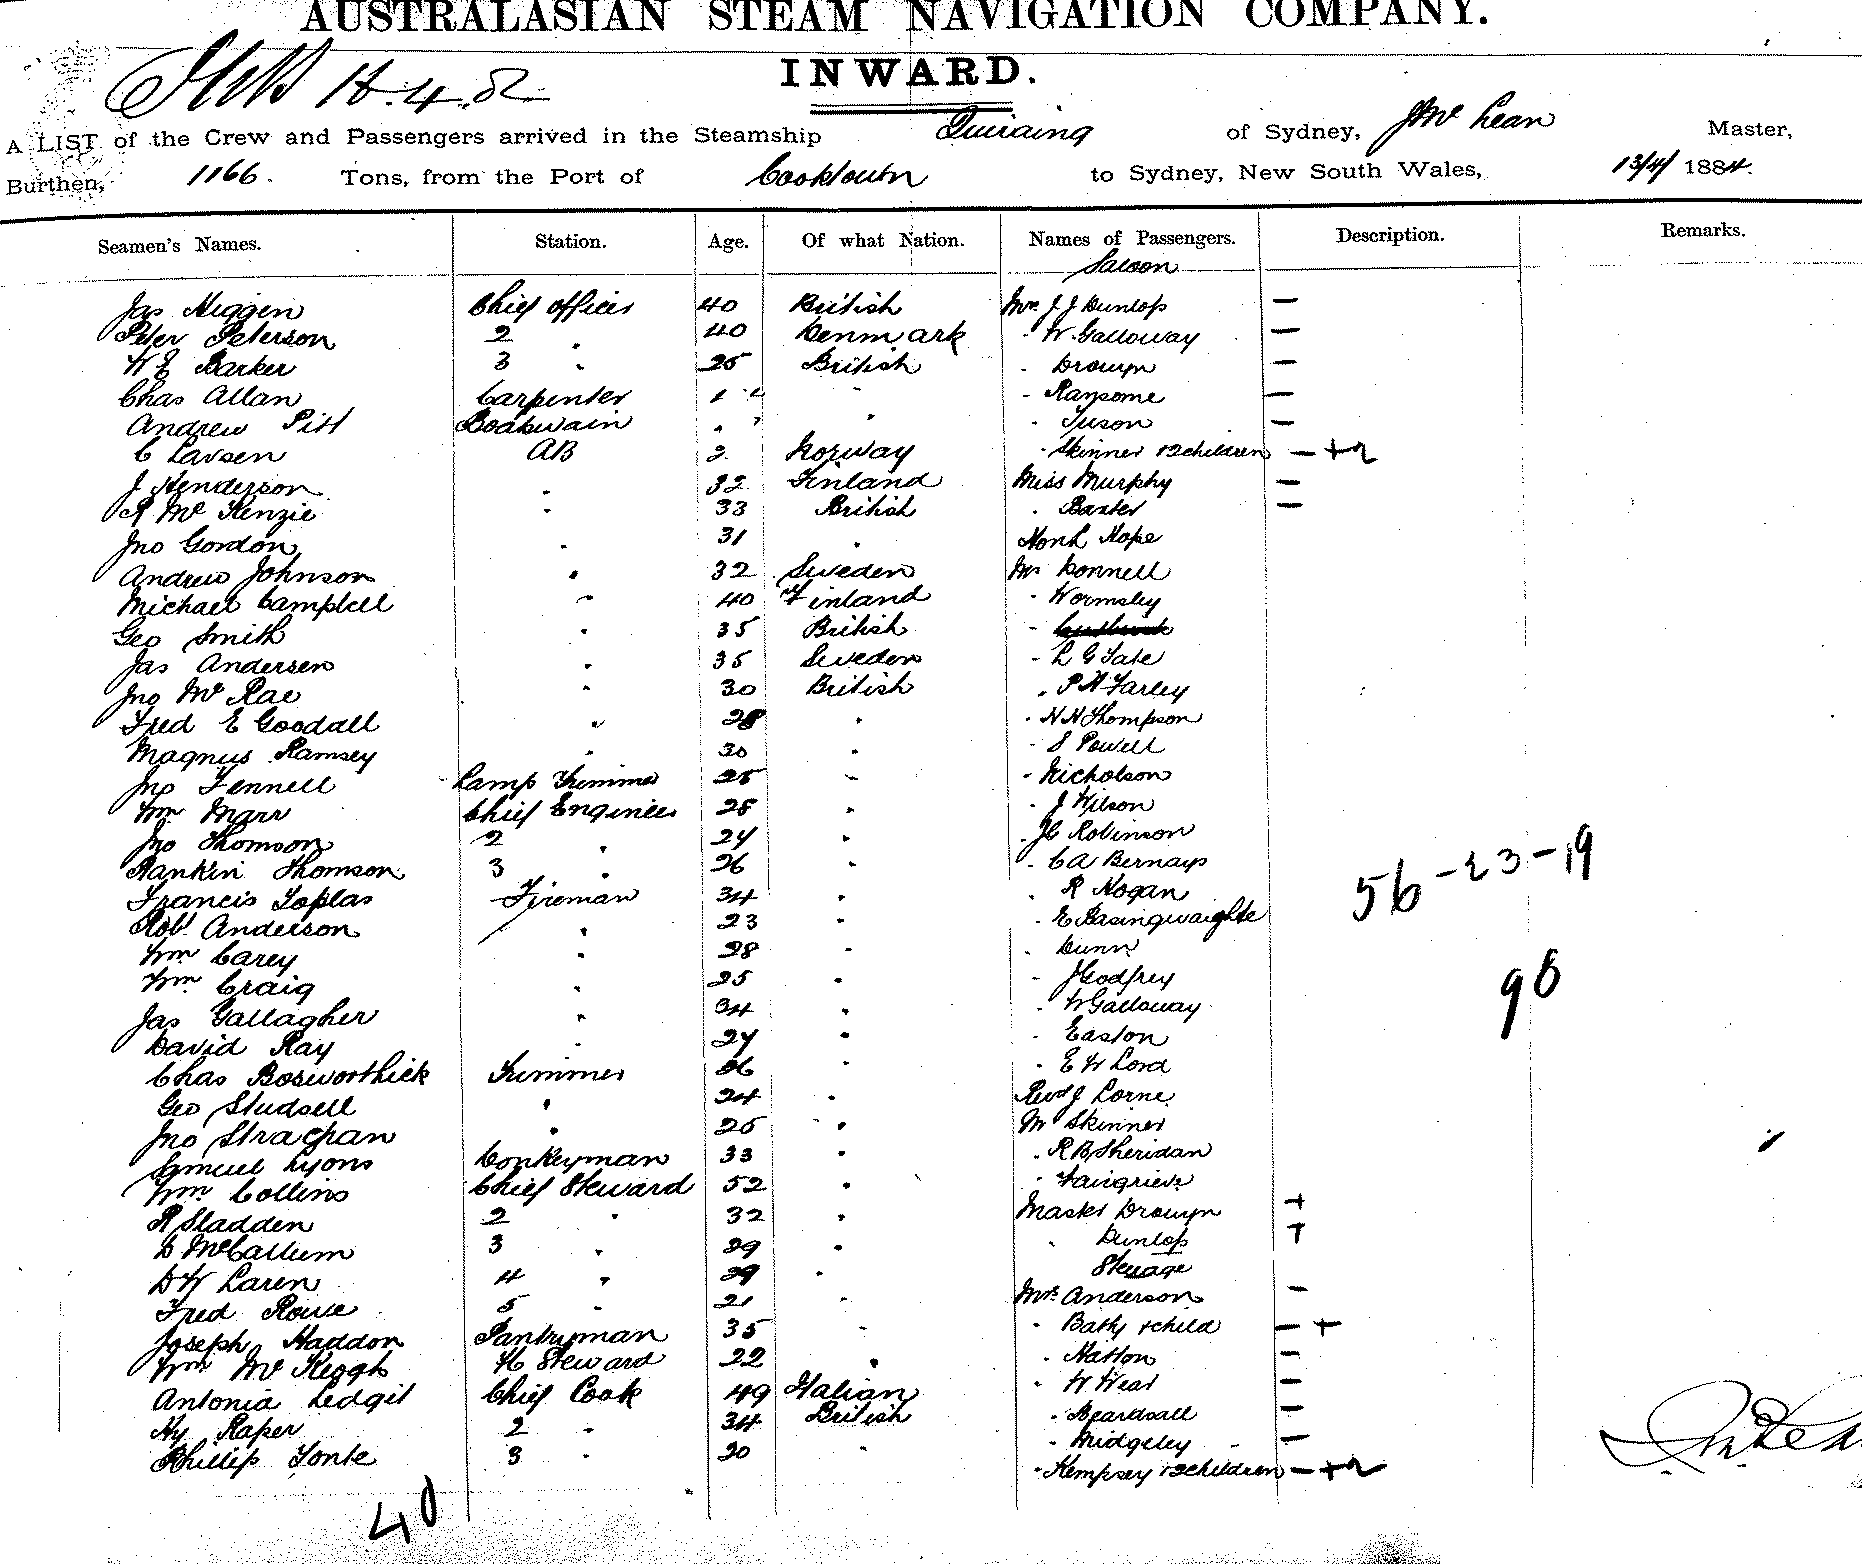 AUSTRALASIAN STEAM NAVIGATION COMPANY.
INWARD.
A LIST of the Crew and Passengers arrived in the Steamship Quiraing of Sydney, J Mc Lean Master,
Burthen, 1166. Tons, from the Port of Cooktown to Sydney, New South Wales, 13/4/ 1884.
Seamen's Names. Station. Age. Of what Nation. Names of Passengers. Description. Remarks.
Saloon
Jas Higgen Chief officer 40 British Mrs J J Dunlop —
Peter Peterson 2 " 40 Denmark " W. Galloway —
W E Barker 3 " 25 British " Drowyn —
Chas Allan Carpenter " " Ransome —
Andrew Pitt Boatswain " " Tuson —
C Larsen AB Norway " Skinner & 2 children — + 2
J Henderson " 32 Finland Miss Murphy —
R Mc Kenzie " 33 British " Baxter —
Jno Gordon " 31 " Honl Hope
Andrew Johnson " 32 Sweden Mr Connell
Michael Campbell " 40 Finland " Wormsley
Geo Smith " 35 British "
Jas Andersen " 35 Sweden " L G Tate
Jno Mc Rae " 30 British " P H Farley
Fred E Goodall " 28 " " H H Thompson
Magnus Ramsey " 30 " " S Powell
Jno Fennell Lamp Trimmer 25 " " Nicholson
Wm Marr Chief Engineer 28 " " J Wilson
Jno Thomson 2 " 27 " " J G Robinson
Rankin Thomson 3 " 26 " " C A Bernays
Francis Toplas Fireman 34 " " R Hogan
Robt Anderson " 23 " " E Basingwaighte
Wm Carey " 28 " " Dunn
Wm Craig " 25 " " J Godfrey
Jas Gallagher " 34 " " W Galloway
David Ray " 27 " " Easton
Chas Bosworthick Trimmer 26 " " E W Lord
Geo Studsell " 24 " Revd J Lorne
Jno Strachan " 25 " Mr Skinner
Samuel Lyons Donkeyman 33 " " R B Sheridan
Wm Collins Chief Steward 52 " " Fairgrieve
R Sladden 2 " 32 " Master Drowyn +
D McCallum 3 " 29 " " Dunlop +
D W Laren 4 " 29 " Steerage
Fred Rowe 5 " 21 " Mrs Anderson —
Joseph Haddon Pantryman 35 " " Bath & child — +
Wm Mc Keogh H Steward 22 " " Hatton —
Antonia Ledgil Chief Cook 49 Italian " W Wear —
Hy Raper 2 " 34 British " Beardsall —
Phillip Tonte 3 " 20 " " Midgeley —
" Kempsey & 2 children — + 2
56 - 23 - 19
98
40